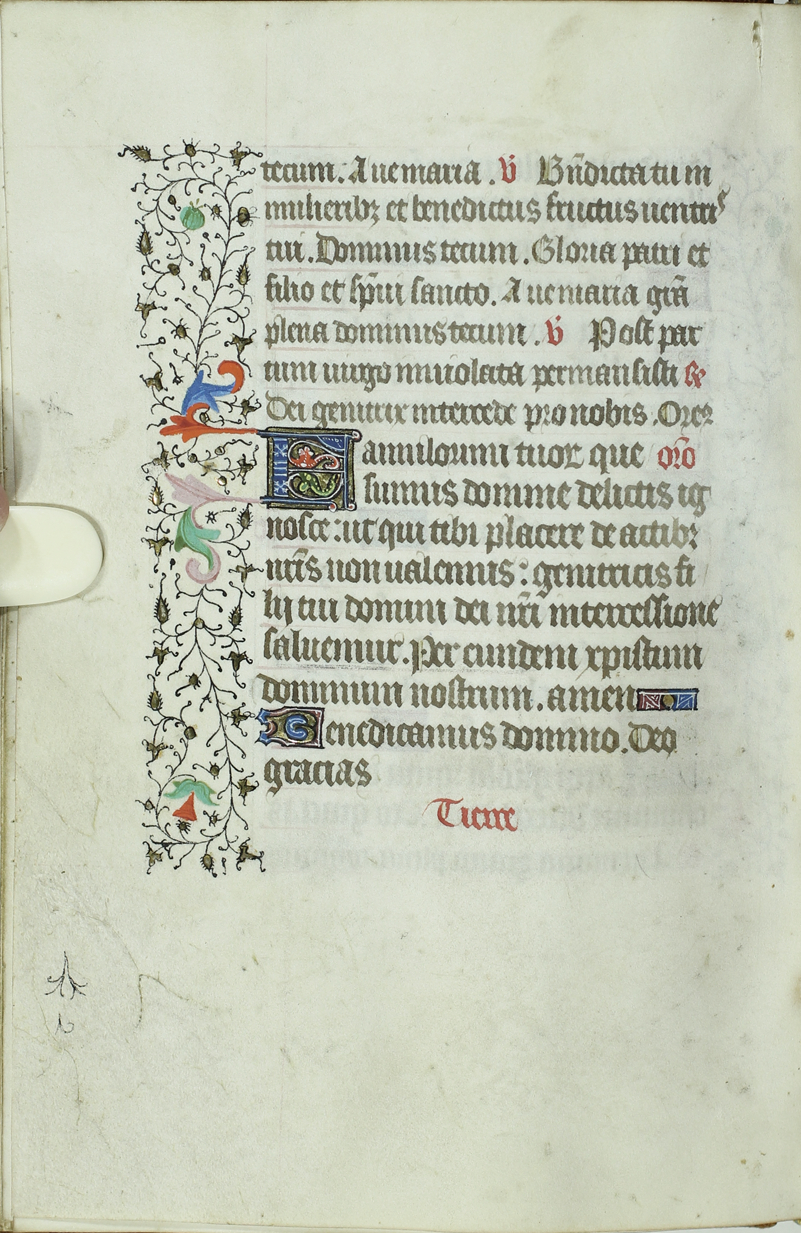 tecum. Aue maria. ℣ Bn̄dicta tu in
mulieribꝫ et benedictus fructus uentrꝭ
tui. Dominus tecum. Gloria patri et
filio et sp̄ui sancto. Aue maria gr̄a
plena dominus tecum. ℣ Post par
tum uirgo inuiolata permansisti
Dei genitrix intercede pro nobis.
Famulorum tuoꝝ que or̄o
sumus domine delictis ig
nosce: ut qui tibi placere de actibꝫ
nr̄is non ualemus: genitricis fi
lij tui domini dei nr̄i intercessione
saluemur. Per eundem xpistum
dominum nostrum. amen
Benedicamus domino. Deo
gracias
Tierce